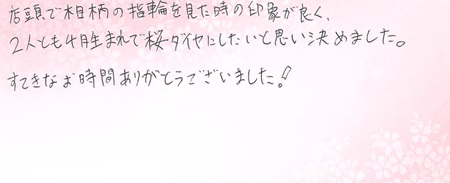 店頭で桜柄の指輪を見た時の印象が良く、
2人とも4月生まれで桜ダイヤにしたいと思い決めました。
すてきなお時間ありがとうございました！